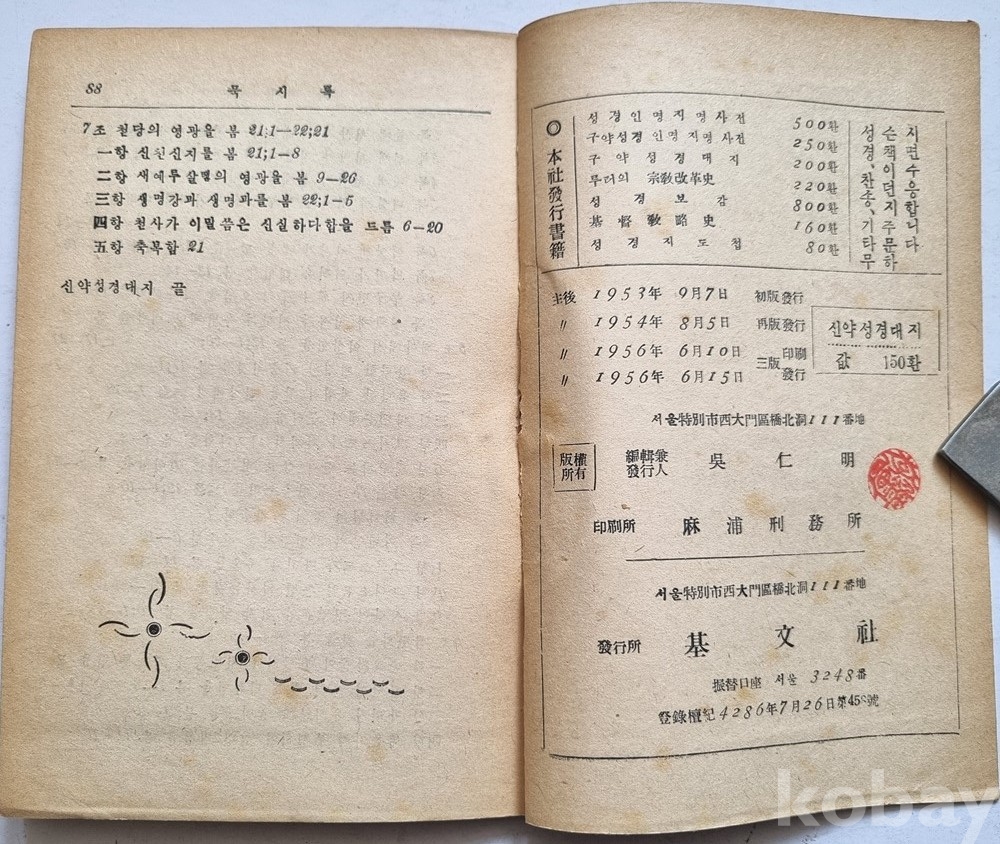 88 묵시록
7조 천당의 영광을 봄 21;1—22;21
一항 신천신지를 봄 21;1—8
二항 새예루살렘의 영광을 봄 9—26
三항 생명강과 생명과를 봄 22;1—5
四항 천사가 이말씀은 신실하다함을 드틈 6—20
五항 축복함 21
신약성경대지 끝
◎ 本社發行書籍
성경인명지명사전 500환
구약성경인명지명사전 250환
구약성경대지 200환
루터의 宗敎改革史 220환
성경보감 800환
基督敎略史 160환
성경지도첩 80환
성경、찬송、기타무
슨책이던지주문하
시면수응합니다
主後 1953年 9月7日 初版發行
〃 1954年 8月5日 再版發行
〃 1956年 6月10日 三版印刷
〃 1956年 6月15日 發行
신약성경대지
값 150환
서울特別市西大門區橋北洞111番地
版權所有
編輯兼發行人 吳仁明
印刷所 麻浦刑務所
서울特別市西大門區橋北洞111番地
發行所 基文社
振替口座 서울 3248番
登錄檀紀4286年7月26日第45 號
kobay